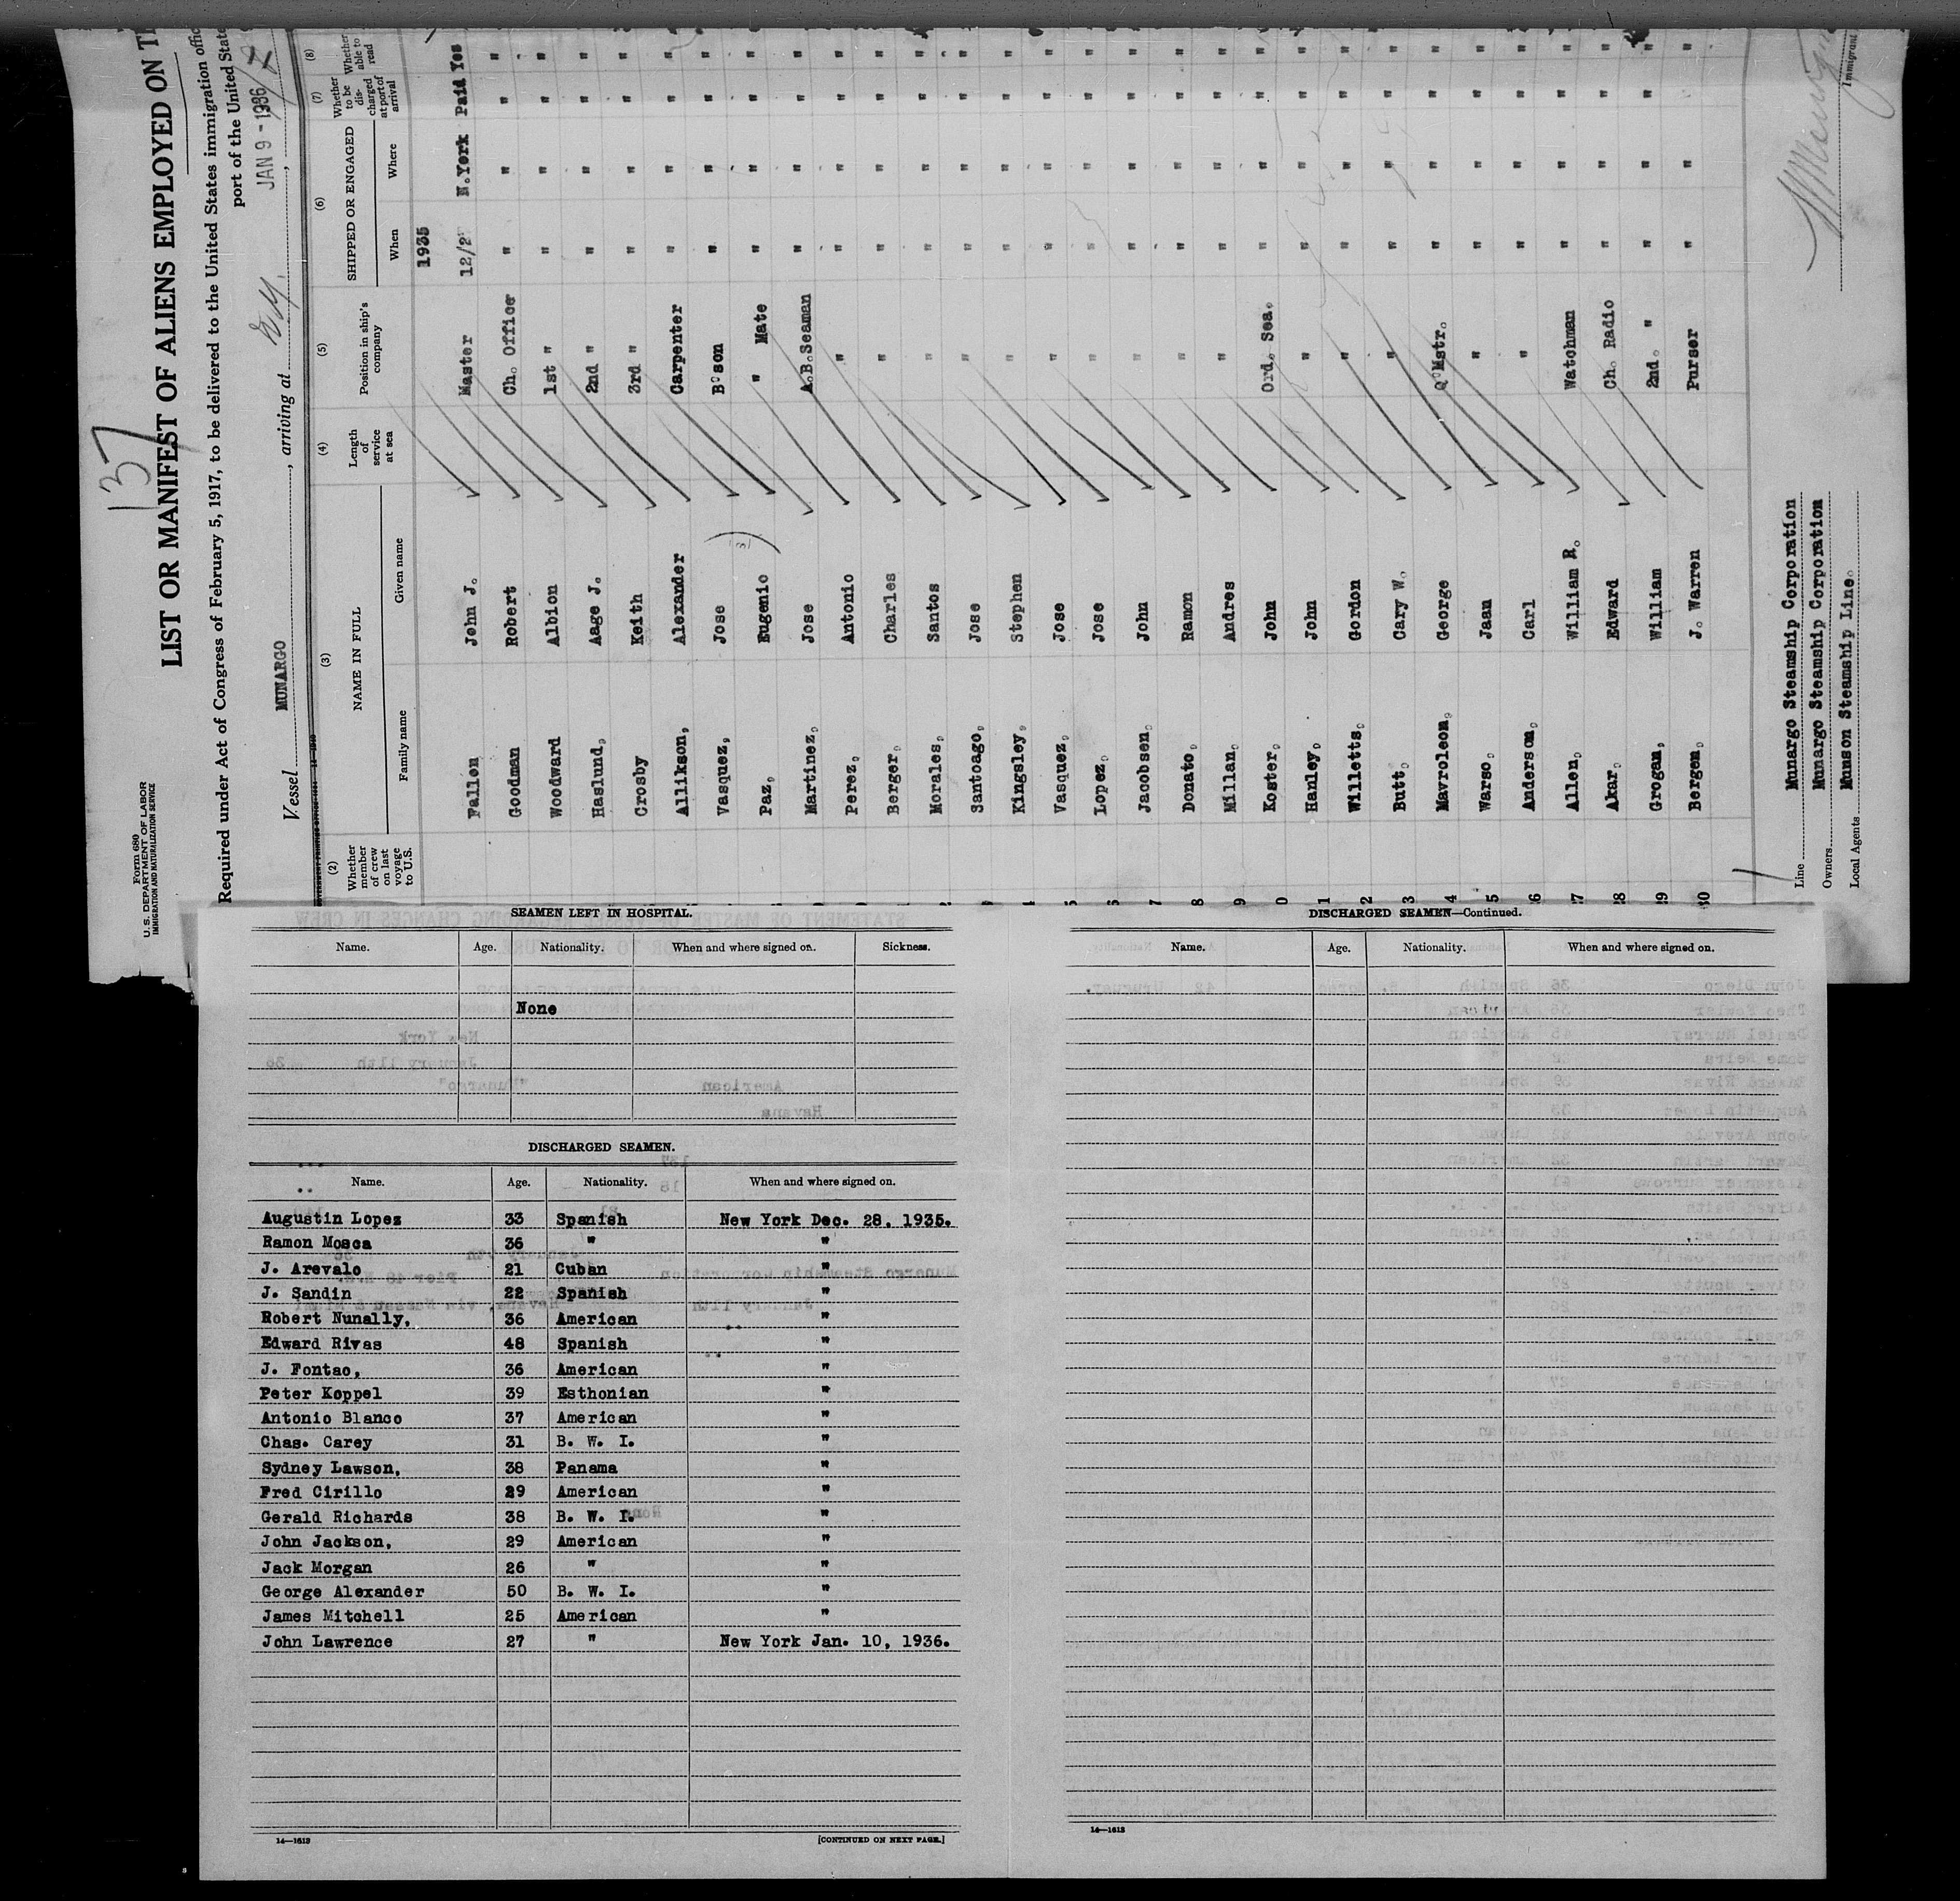 137
Form 680
U. S. DEPARTMENT OF LABOR
IMMIGRATION AND NATURALIZATION SERVICE
LIST OR MANIFEST OF ALIENS EMPLOYED ON
Required under Act of Congress of February 5, 1917, to be delivered to the United States immigration
port of the United
Vessel MUNARGO, arriving at N.Y. JAN 9 - 1936,
(2) (3) (4) (5) (6) (7) (8)
Whether member of crew on last voyage to U.S. NAME IN FULL Length of service at sea Position in ship's company SHIPPED OR ENGAGED Whether to be discharged at port of arrival Whether able to read
Family name Given name When Where
1935
Fallen John J. Master 12/2 N.York Paid Yes
Goodman Robert Ch. Officer " " " "
Woodward Albion 1st " " " " "
Haslund, Aage J. 2nd " " " " "
Crosby Keith 3rd " " " " "
Allikson, Alexander Carpenter " " " "
Vasquez, Jose B'son " " " "
Paz, Eugenio " Mate " " " "
Martinez, Jose A.B.Seaman " " " "
Perez, Antonio " " " " "
Berger, Charles " " " " "
Morales, Santos " " " " "
Santoago, Jose " " " " "
Kingsley, Stephen " " " " "
5 Vasquez, Jose " " " " "
6 Lopez, Jose " " " " "
7 Jacobsen, John " " " " "
8 Donato, Ramon " " " " "
9 Millan, Andres " " " " "
0 Koster, John Ord. Sea. " " " "
1 Hanley, John " " " " "
2 Willetts, Gordon " " " " "
3 Butt, Cary W. " " " " "
4 Mavroleon, George Q'Mstr. " " " "
5 Warso, Jaan " " " " "
26 Anderson, Carl " " " " "
27 Allen, William R. Watchman " " " "
28 Akar, Edward Ch. Radio " " " "
29 Grogan, William 2nd. " " " " "
30 Bergen, J. Warren Purser " " "
Line Munargo Steamship Corporation
Owners Munargo Steamship Corporation
Local Agents Munson Steamship Line.
Immigrant
SEAMEN LEFT IN HOSPITAL.
Name. Age. Nationality. When and where signed on. Sickness.
None
DISCHARGED SEAMEN.
Name. Age. Nationality. When and where signed on.
Augustin Lopez 33 Spanish New York Dec. 28, 1935.
Ramon Mosca 36 " "
J. Arevalo 21 Cuban "
J. Sandin 22 Spanish "
Robert Nunally, 36 American "
Edward Rivas 48 Spanish "
J. Fontao, 36 American "
Peter Koppel 39 Esthonian "
Antonio Blanco 37 American "
Chas. Carey 31 B. W. I. "
Sydney Lawson, 38 Panama "
Fred Cirillo 29 American "
Gerald Richards 38 B. W. I. "
John Jackson, 29 American "
Jack Morgan 26 " "
George Alexander 50 B. W. I. "
James Mitchell 25 American "
John Lawrence 27 " New York Jan. 10, 1936.
14—1613
[CONTINUED ON NEXT PAGE.]
DISCHARGED SEAMEN—Continued.
Name. Age. Nationality. When and where signed on.
14—1613